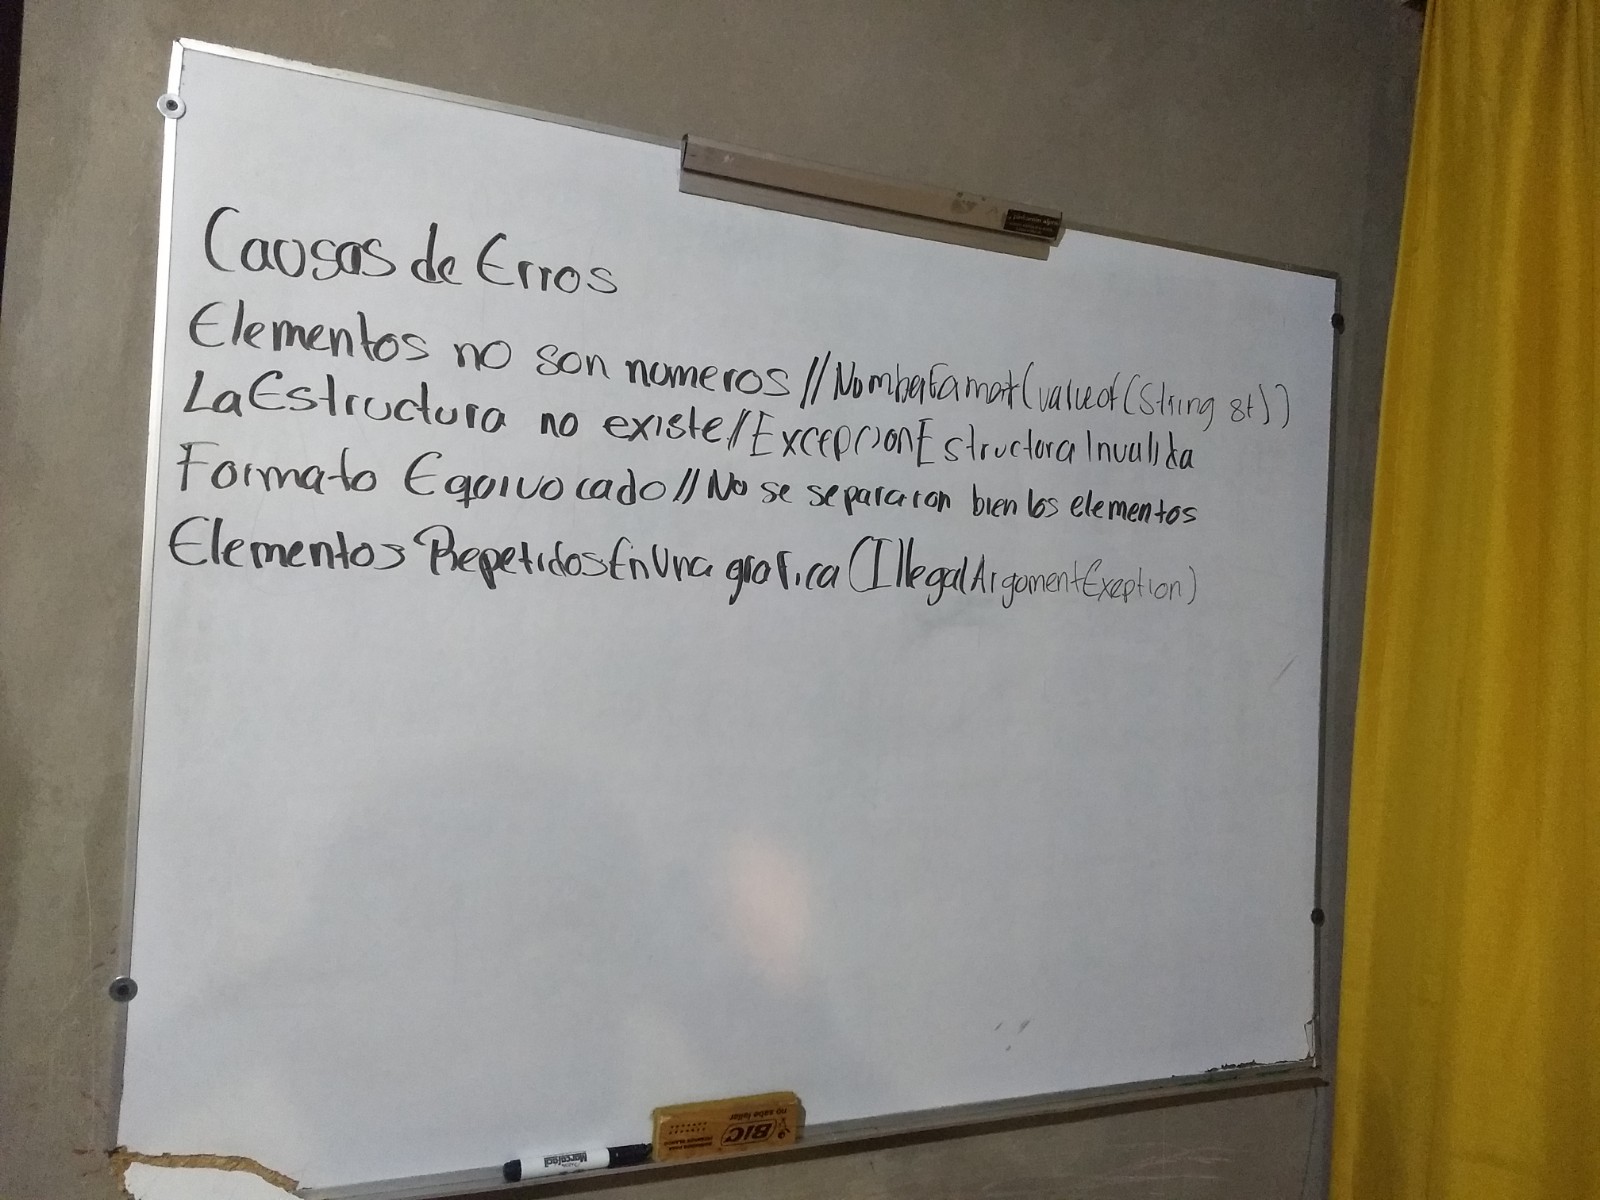 Causas de Erros
Elementos no son numeros //NumberFamat(valueof(String st))
La Estructura no existe//ExcepcionEstructuraInvalida
Formato Equivocado//No se separaron bien los elementos
Elementos Repetidos En Una grafica (IllegalArgumentExeption)
BIC
no sabe fallar